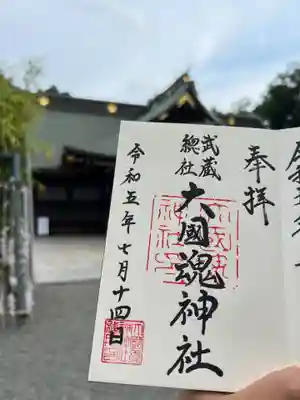 奉拝
武蔵
総社
大國魂神社
令和五年七月十四日